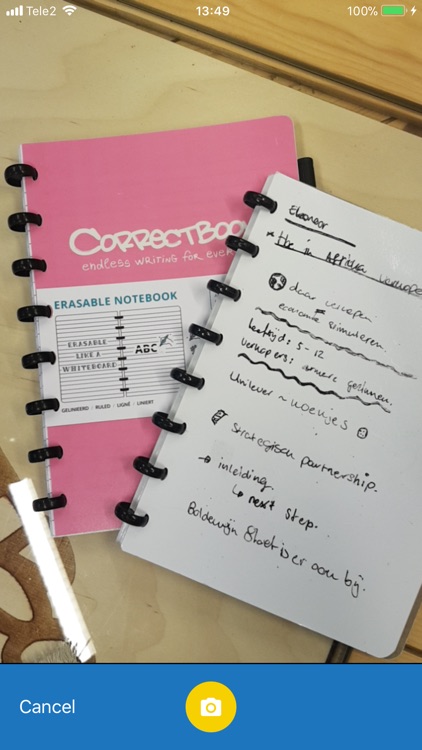 Tele2
13:49
100%
CORRECTBOO
endless WRITING FOR EVER
ERASABLE NOTEBOOK
ERASABLE
LIKE A
WHITEBOARD
ABC
GELINIEERD · RULED · LIGNÉ · LINIERT
Eleanor
* Hr in Afrika verkope
daar verkopen
economie stimuleren.
leeftijd: 5 - 12
verkopers: armere gezinnen.
Unilever ~ koekjes
Strategisch partnership.
inleiding.
↳ next step.
Boldewijn Sloet is er aan bij.
Cancel